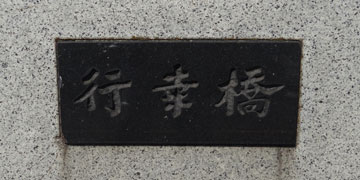 行幸橋